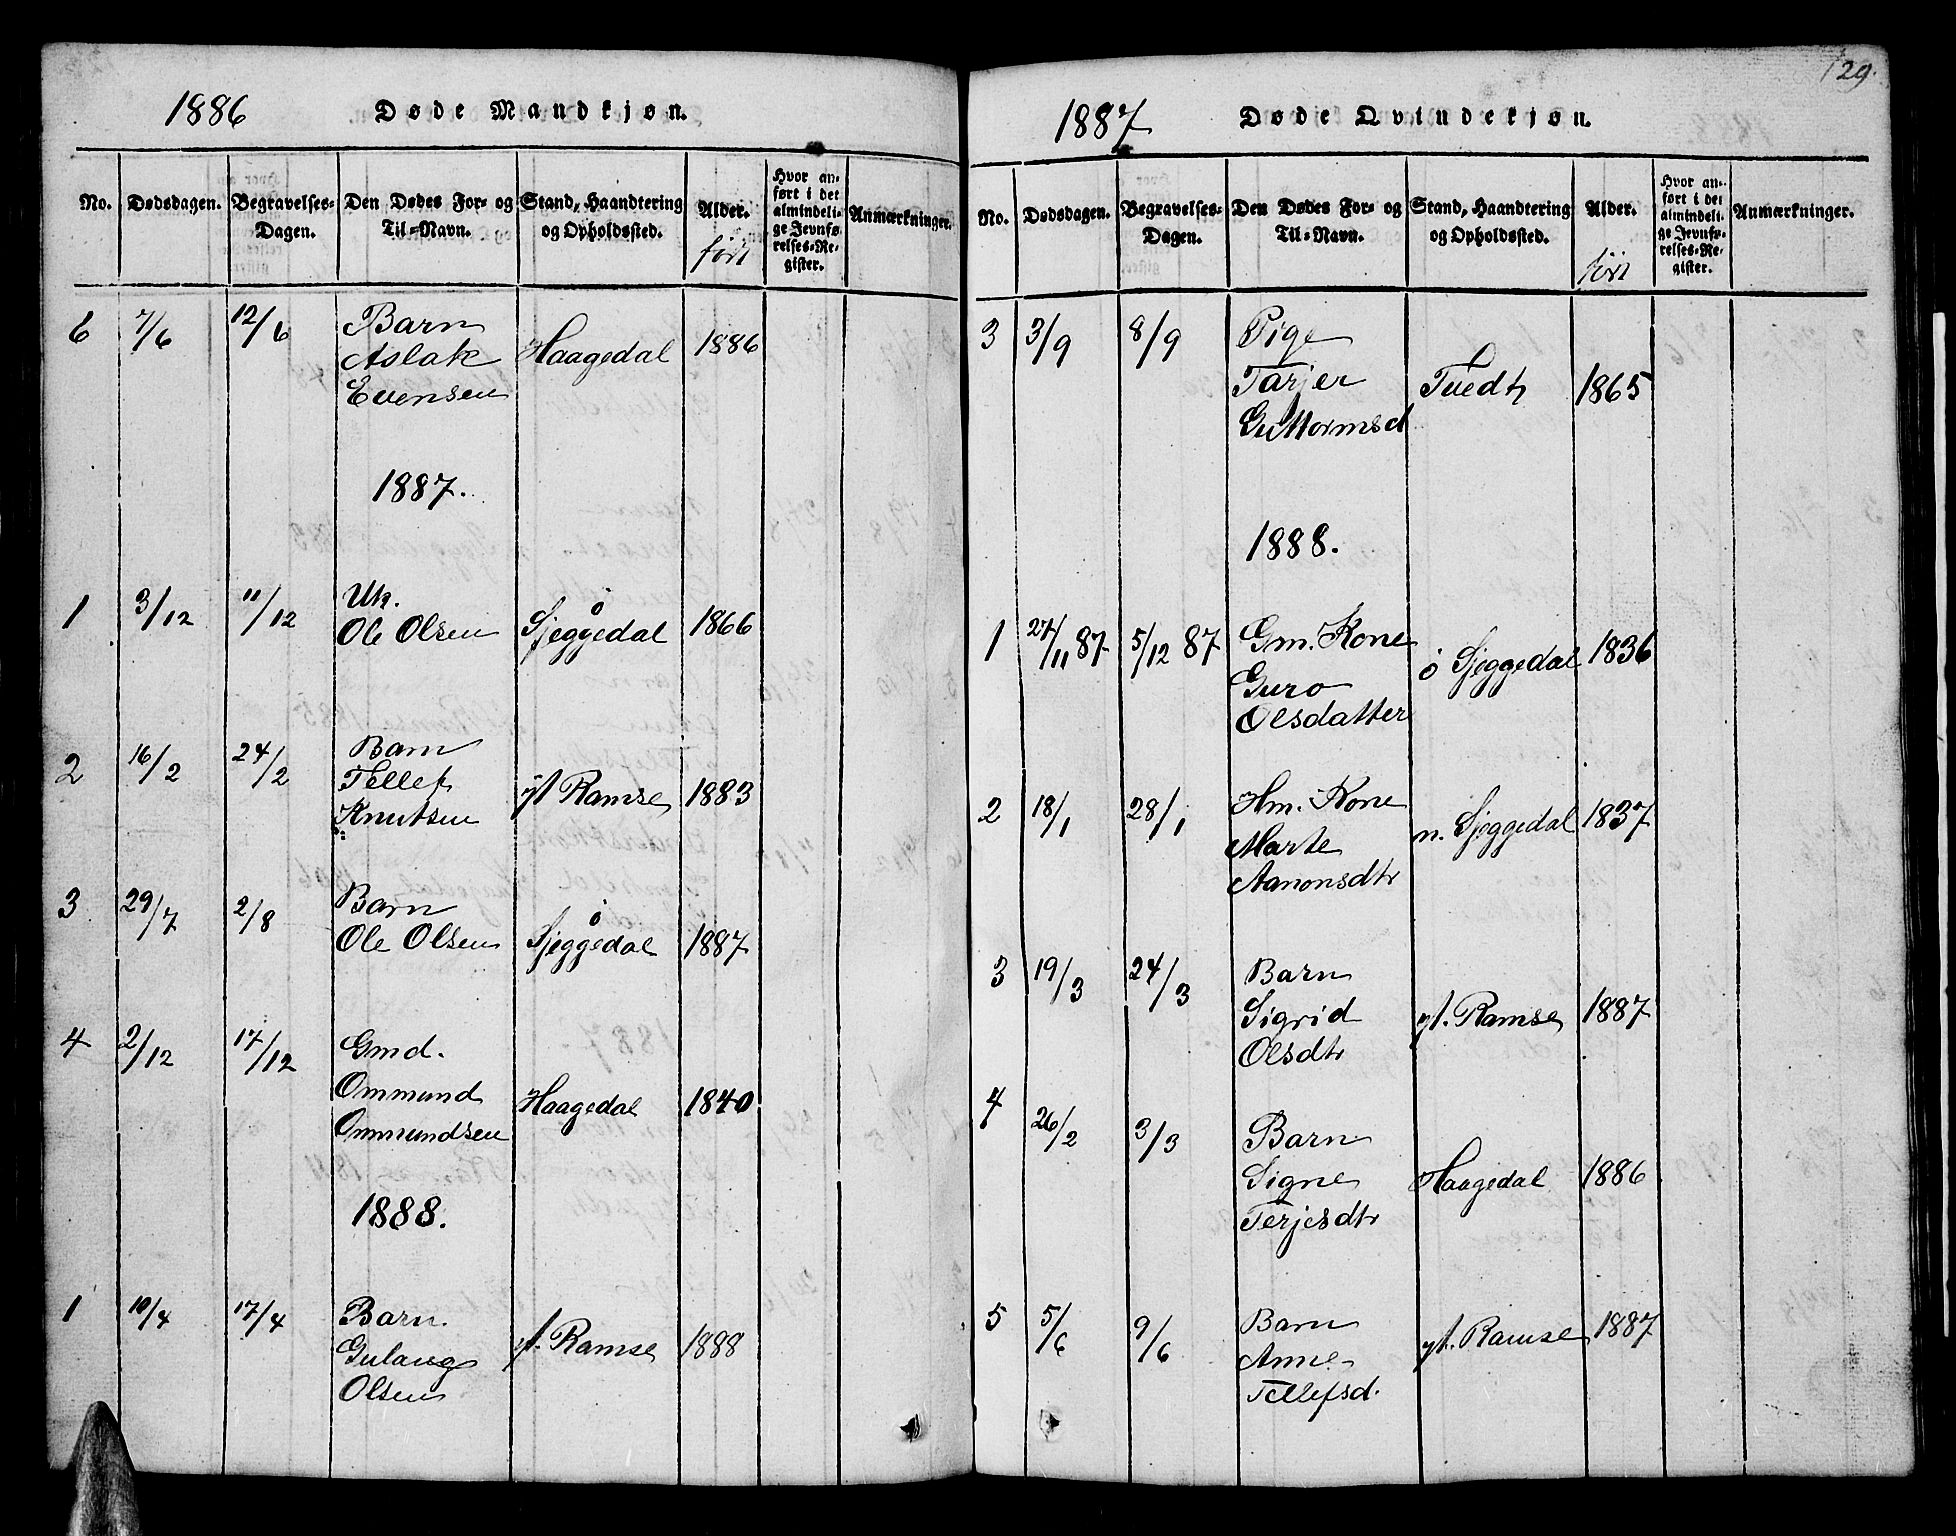 1886 Døde Mandkjøn.
No. Dødsdagen. Begravelses-Dagen. Den Dødes For- og Til-Navn. Stand, Haandtering og Opholdssted. Alder. født Hvor anført i det almindelige Jevnførelses-Register. Anmærkninger.
6 7/6 12/6 Barn
Aslak Haagedal 1886
Evensen
1887.
1 3/12 11/12 Uk.
Ole Olsen ö Sjeggedal 1866
2 16/2 24/2 Barn
Tellef yt Ramse 1883
Knutsen
3 29/7 2/8 Barn
Ole Olsen ö Sjeggedal 1887
4 2/12 17/12 Gmd.
Ommund Haagedal 1840
Ommundsen
1888.
1 10/4 17/4 Barn.
Gulaug yt. Ramse 1888
Olsen
129.
1887 Døde Qvindekjøn.
No. Dødsdagen. Begravelses-Dagen. Den Dødes For- og Til-Navn. Stand, Haandtering og Opholdssted. Alder. født Hvor anført i det almindelige Jevnførelses-Register. Anmærkninger.
3 3/9 8/9 Pige
Tarjer Tvedt 1865
Guttormsd
1888.
1 27/11 87 5/12 87 Gm. Kone
Guro ö Sjeggedal 1836
Olsdatter
2 18/1 28/1 Hm. Kone
Marte n. Sjeggedal 1837
Aanonsdtr
3 19/3 24/3 Barn
Sigrid yt. Ramse 1887
Olsdtr
4 26/2 3/3 Barn
Signe Haagedal 1886
Terjesdtr
5 5/6 9/6 Barn
Anne yt. Ramse 1887
Tellefsd.